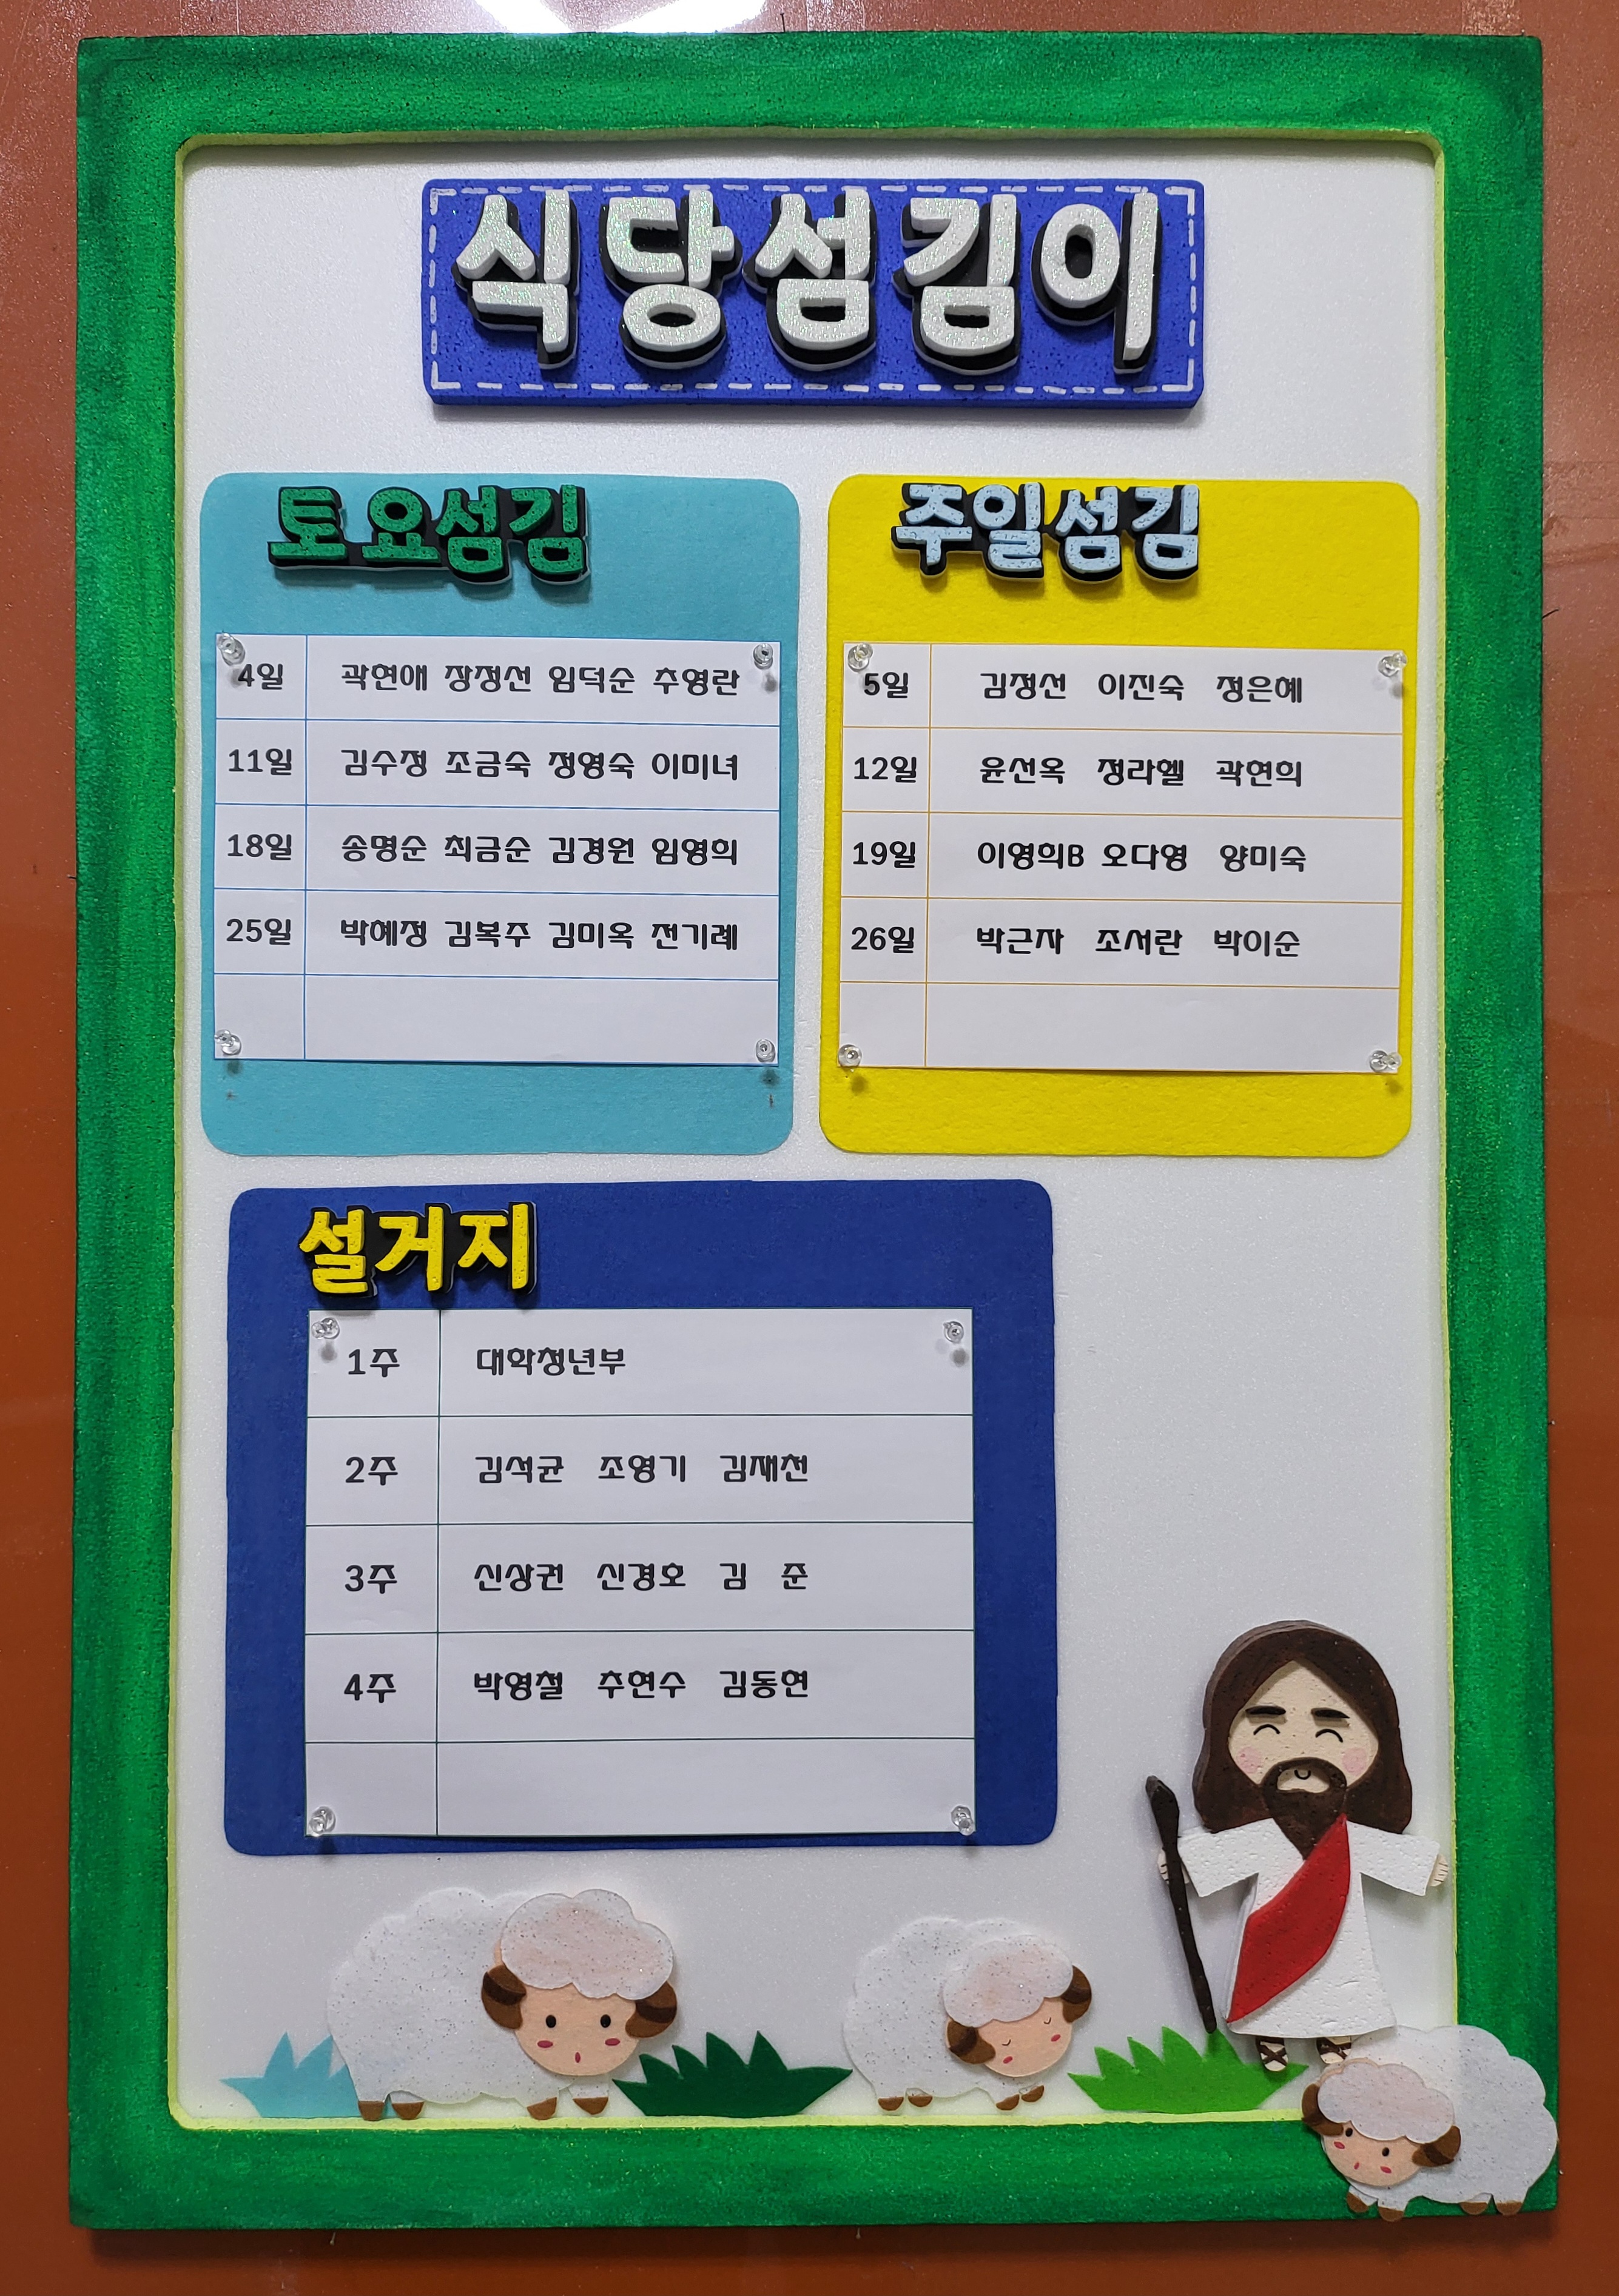 식당섬김이
토요섬김
4일 곽현애 장정선 임덕순 추영란
11일 김수정 조금숙 정영숙 이미녀
18일 송명순 최금순 김경원 임영희
25일 박혜정 김복주 김미옥 전기례
주일섬김
5일 김정선 이진숙 정은혜
12일 윤선옥 정라엘 곽현희
19일 이영희B 오다영 양미숙
26일 박근자 조서란 박이순
설거지
1주 대학청년부
2주 김석균 조영기 김재천
3주 신상권 신경호 김 준
4주 박영철 추현수 김동현